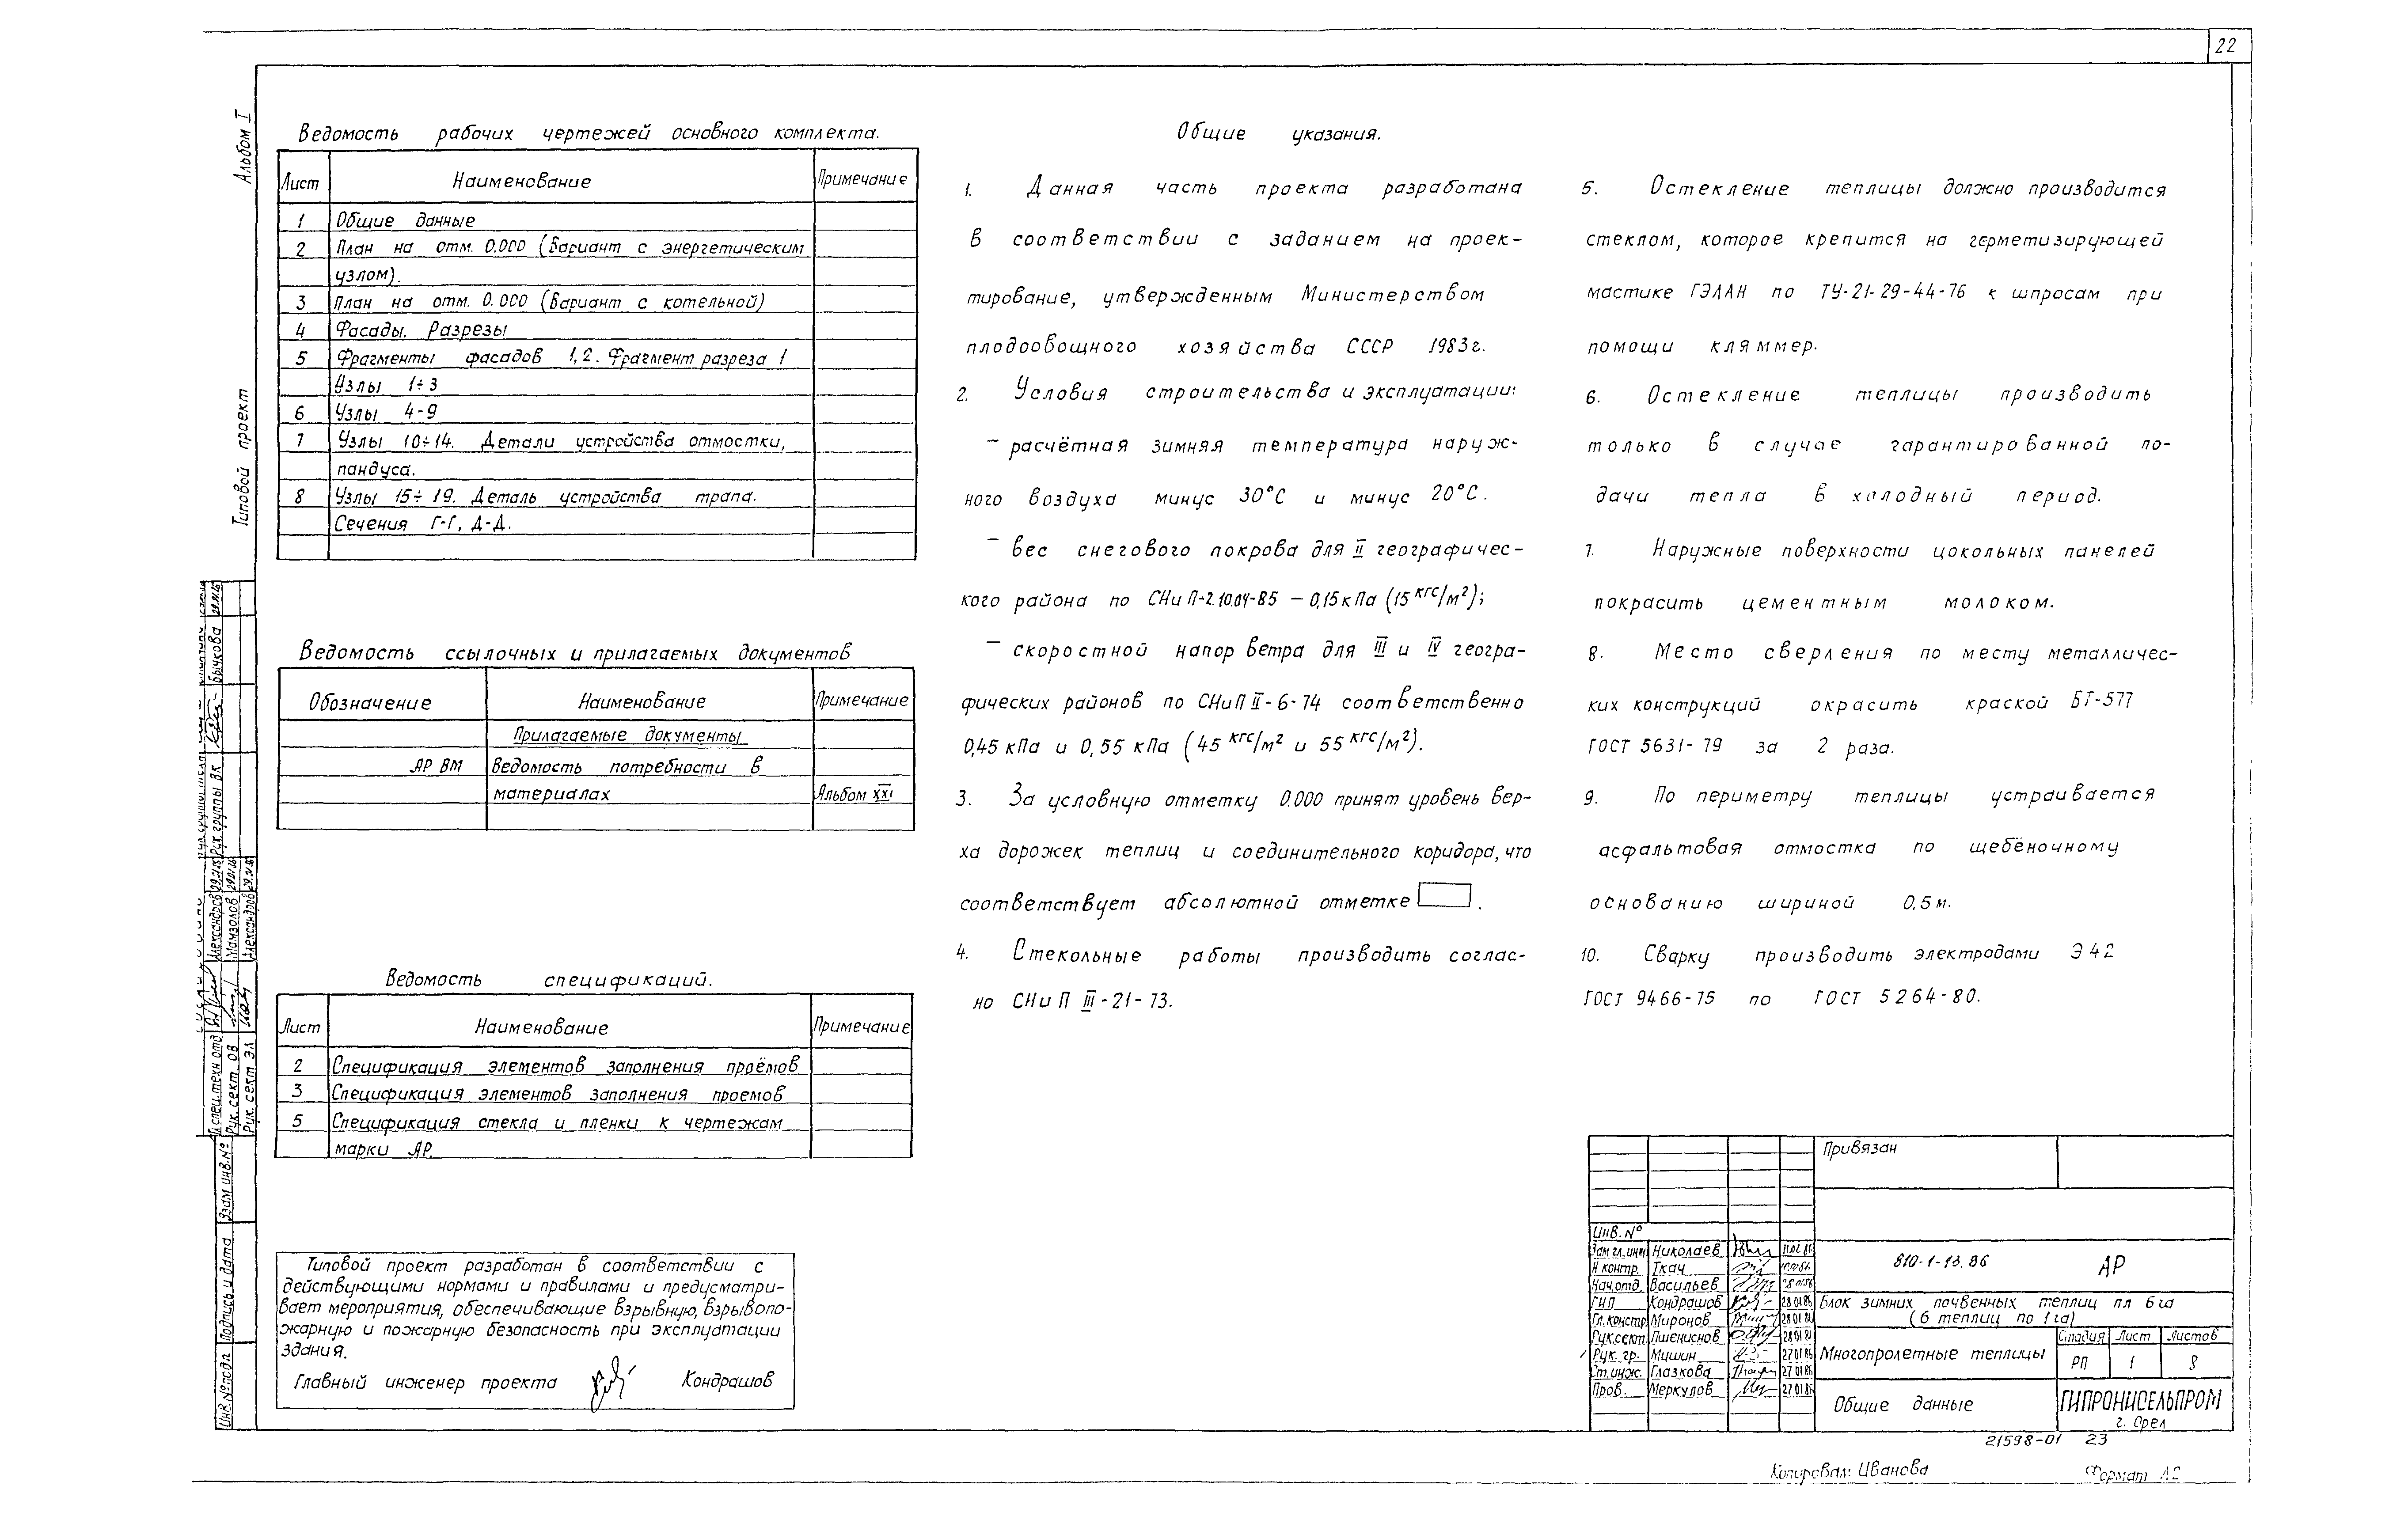 22
Альбом I
Типовой проект
Ведомость рабочих чертежей основного комплекта.
Лист Наименование Примечание
1 Общие данные
2 План на отм. 0.000 (Вариант с энергетическим
узлом).
3 План на отм. 0.000 (Вариант с котельной)
4 Фасады. Разрезы
5 Фрагменты фасадов 1,2. Фрагмент разреза 1
Узлы 1÷3
6 Узлы 4-9
7 Узлы 10÷14. Детали устройства отмостки,
пандуса.
8 Узлы 15÷19. Деталь устройства трапа.
Сечения Г-Г, Д-Д.
Ведомость ссылочных и прилагаемых документов
Обозначение Наименование Примечание
Прилагаемые документы
АР ВМ Ведомость потребности в
материалах Альбом XXI
Ведомость спецификаций.
Лист Наименование Примечание
2 Спецификация элементов заполнения проёмов
3 Спецификация элементов заполнения проемов
5 Спецификация стекла и пленки к чертежам
марки АР.
Типовой проект разработан в соответствии с
действующими нормами и правилами и предусматри-
вает мероприятия, обеспечивающие взрывную, взрывопо-
жарную и пожарную безопасность при эксплуатации
здания.
Главный инженер проекта Кондрашов
Общие указания.
1. Данная часть проекта разработана
в соответствии с заданием на проек-
тирование, утвержденным Министерством
плодоовощного хозяйства СССР 1983г.
2. Условия строительства и эксплуатации:
– расчётная зимняя температура наруж-
ного воздуха минус 30°С и минус 20°С.
– вес снегового покрова для II географичес-
кого района по СНиП-2.10.04-85 – 0,15кПа (15 кгс/м²);
– скоростной напор ветра для III и IV геогра-
фических районов по СНиП II-6-74 соответственно
0,45 кПа и 0,55 кПа (45 кгс/м² и 55 кгс/м²).
3. За условную отметку 0.000 принят уровень вер-
ха дорожек теплиц и соединительного коридора, что
соответствует абсолютной отметке .
4. Стекольные работы производить соглас-
но СНиП III-21-73.
5. Остекление теплицы должно производится
стеклом, которое крепится на герметизирующей
мастике ГЭЛАН по ТУ-21-29-44-76 к шпросам при
помощи кляммер.
6. Остекление теплицы производить
только в случае гарантированной по-
дачи тепла в холодный период.
7. Наружные поверхности цокольных панелей
покрасить цементным молоком.
8. Место сверления по месту металличес-
ких конструкций окрасить краской БТ-577
ГОСТ 5631-79 за 2 раза.
9. По периметру теплицы устраивается
асфальтовая отмостка по щебёночному
основанию шириной 0,5м.
10. Сварку производить электродами Э42
ГОСТ 9466-75 по ГОСТ 5264-80.
Бычкова
Рук. группы ВК
Александров
Мамзолов
Александров
Гл.спец.техн.отд
Рук. сект. ОВ
Рук. сект ЭЛ
Взам инв.№
Подпись и дата
Инв.№ подл
Привязан
Инв. №
Зам гл. инж Николаев 11.02.86
Н контр. Ткач
Нач.отд. Васильев
ГИП Кондрашов 28.01.86
Гл.констр Миронов 28.01.86
Рук.сект. Пшениснов 28.01.86
Рук. гр. Мишин 27.01.86
Ст.инж. Глазкова 27.01.86
Пров. Меркулов 27.01.86
810-1-13.86 АР
Блок зимних почвенных теплиц пл 6га
(6 теплиц по 1га)
Многопролетные теплицы
Стадия Лист Листов
РП 1 8
Общие данные
ГИПРОНИСЕЛЬПРОМ
г. Орел
21598-01 23
Копировал: Иванова
Формат А2